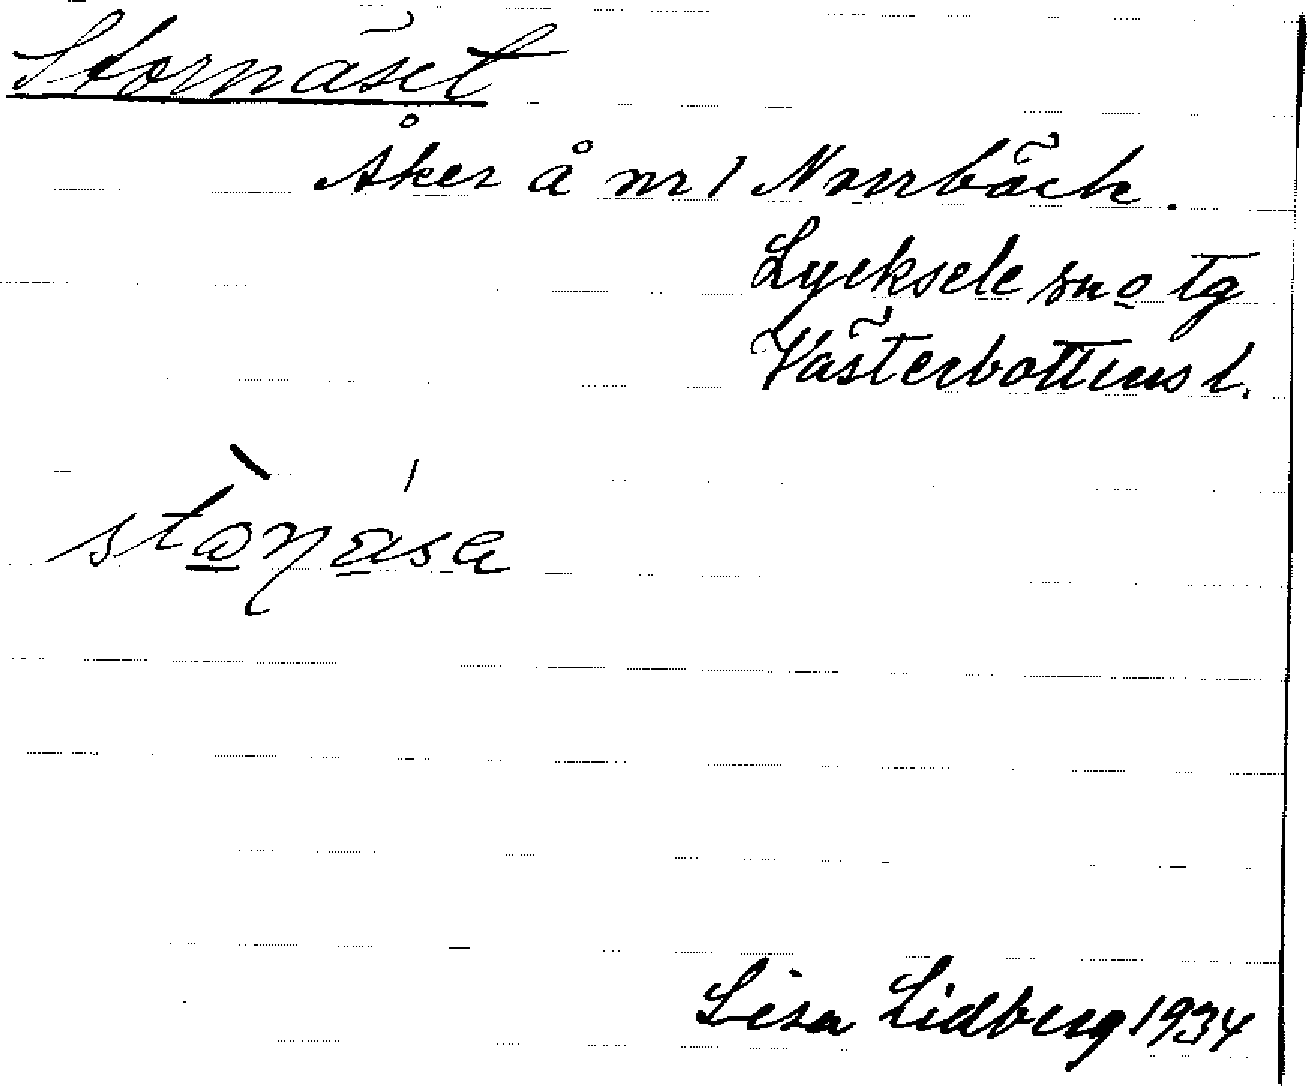 Stornäset
Åker å nr 1 Norrbäck.
Lycksele sn o tg
Västerbottens l.
Lisa Lidberg 1934